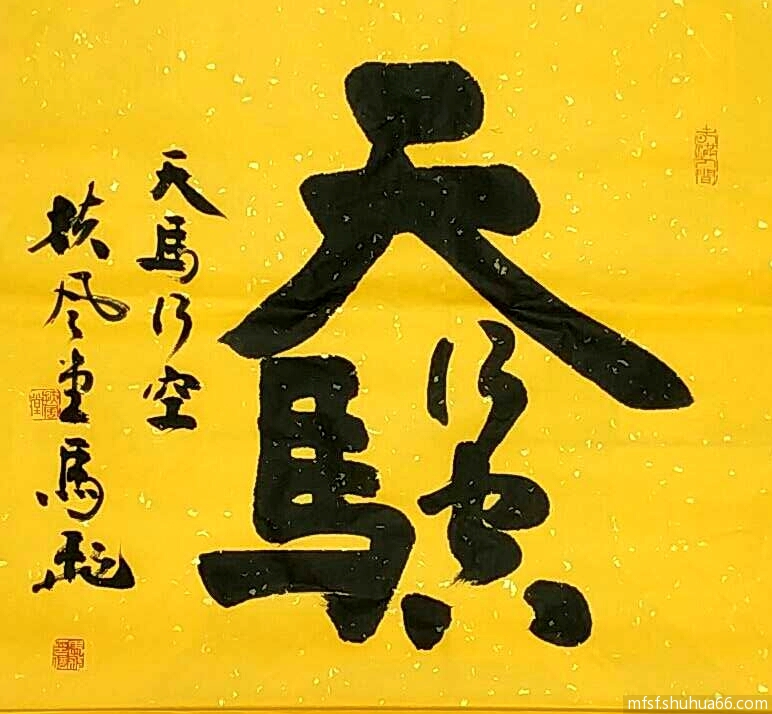 天馬行空
天馬行空
扶风堂馬
mfsf.shuhua66.com